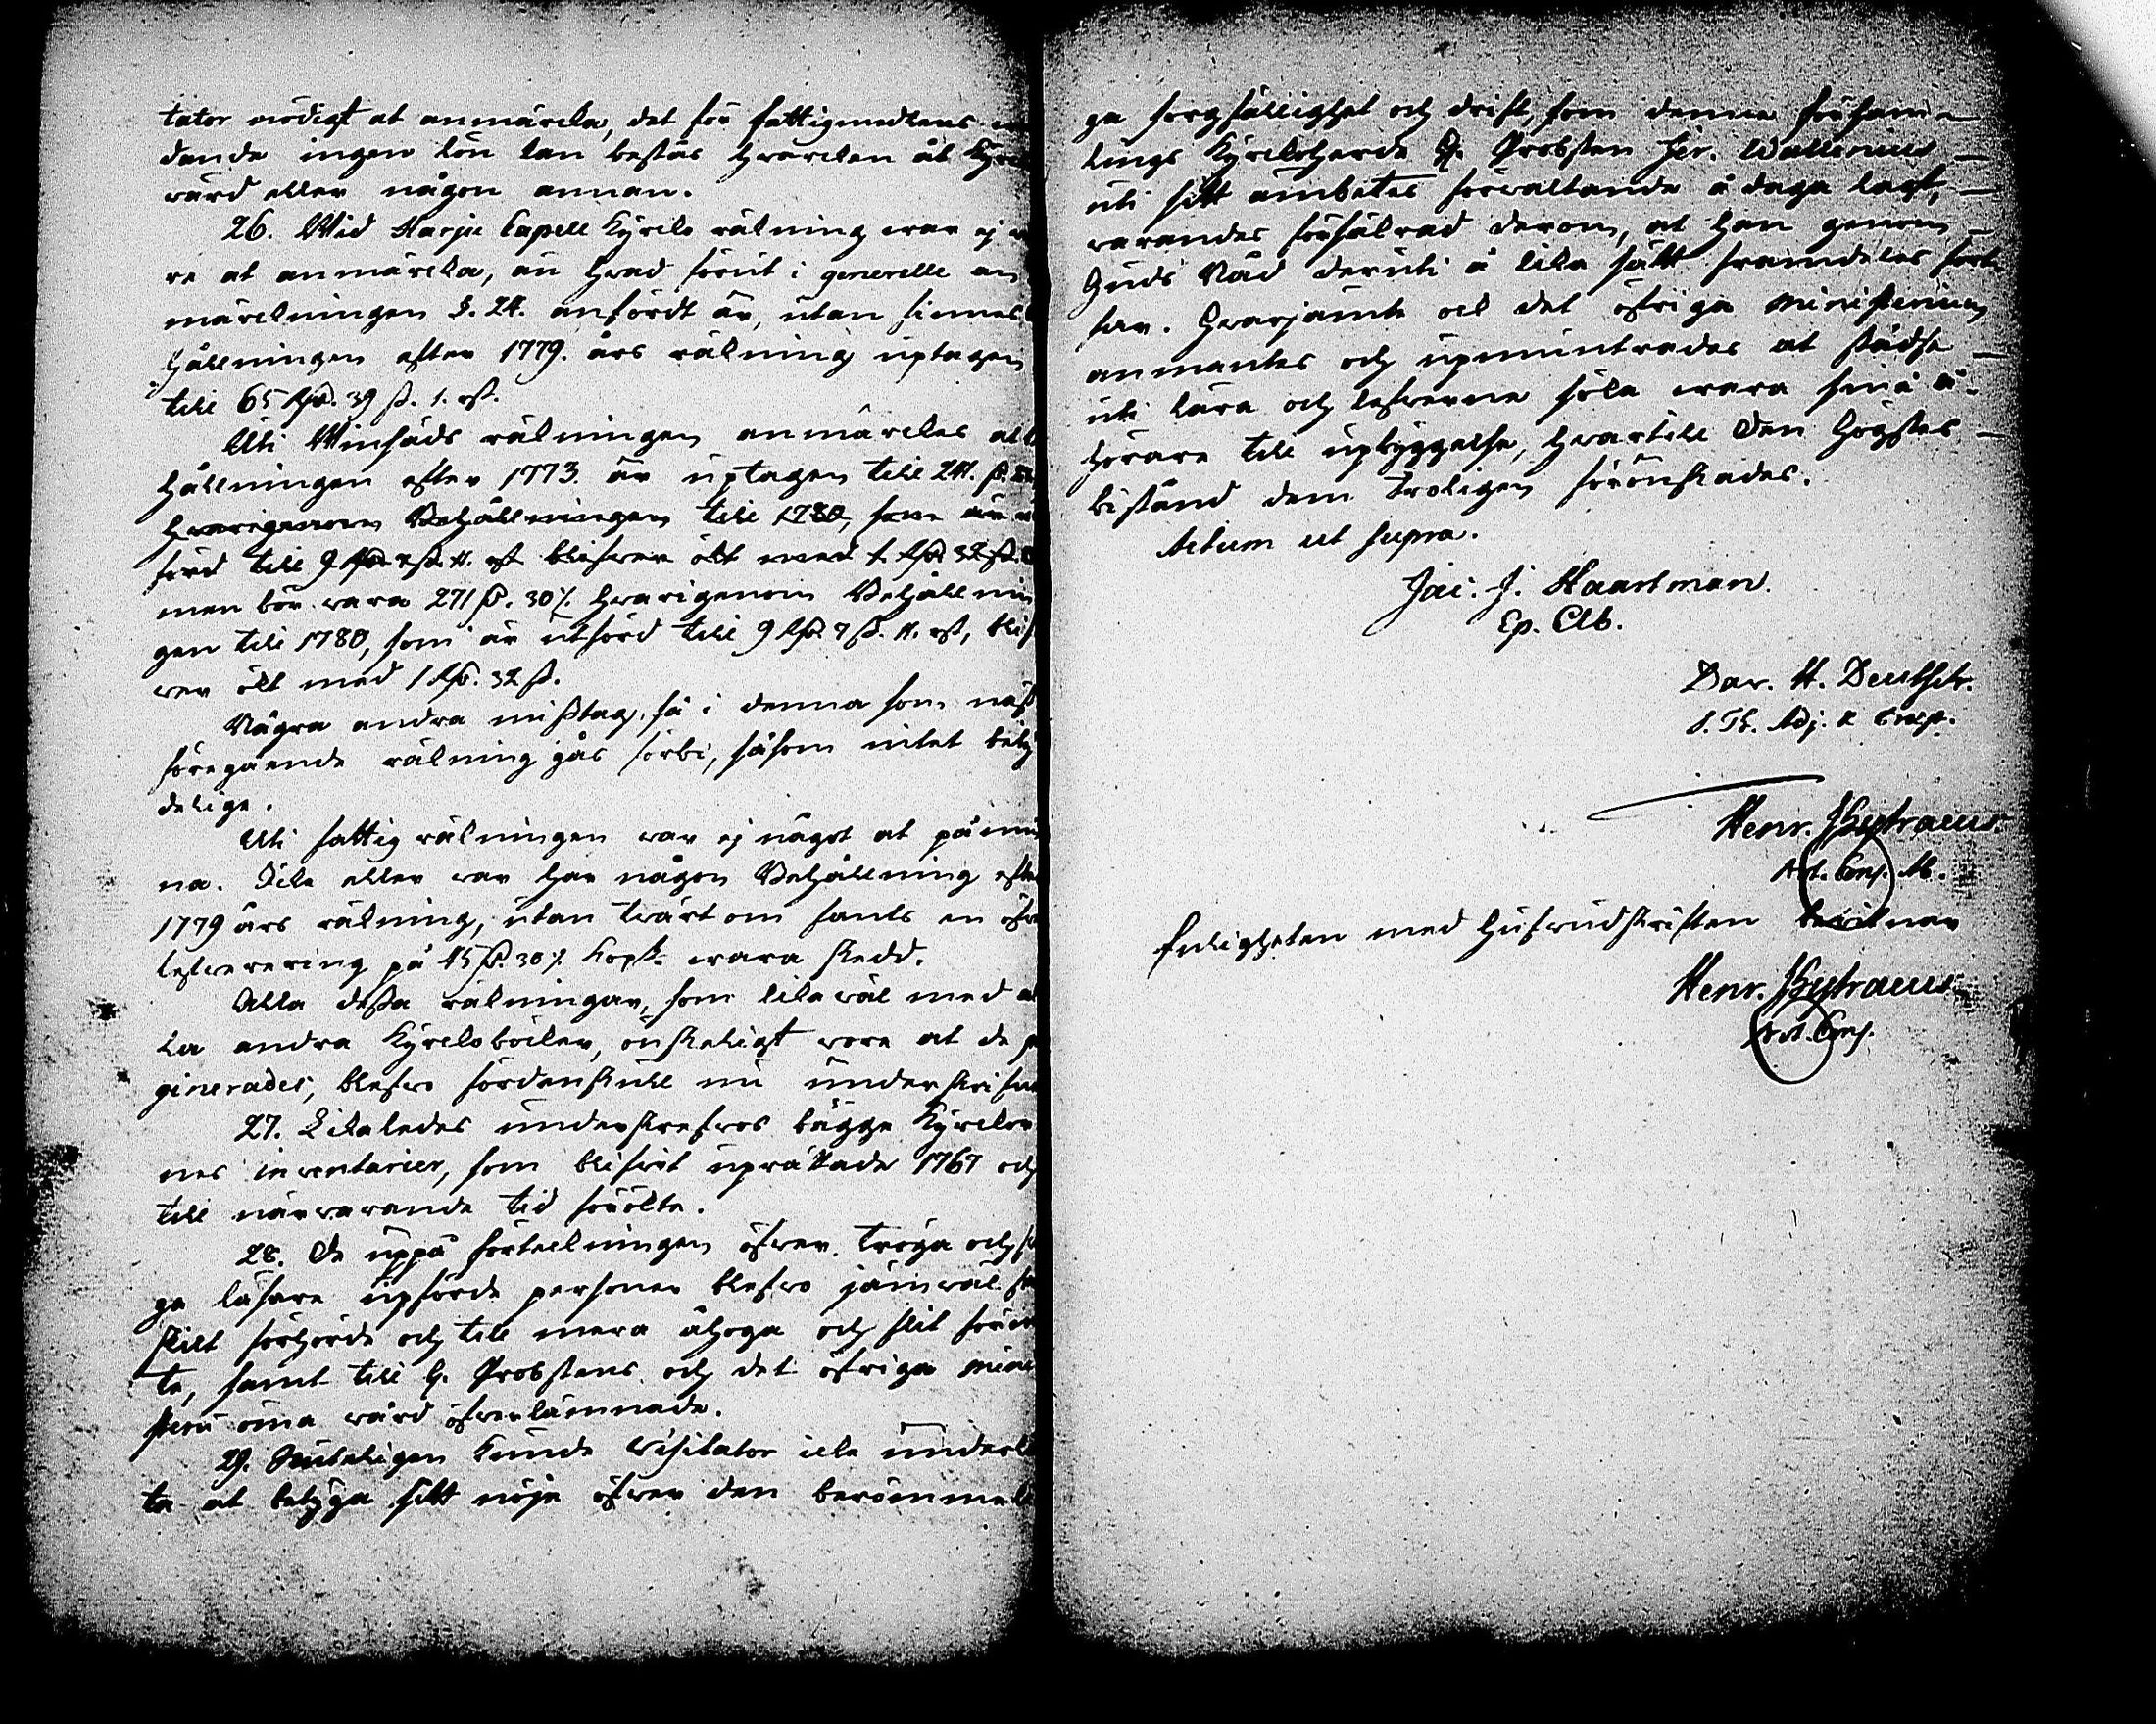 tator nödigt at anmärcka, det för fattigmedlens
dande ingen lön kan bestås hwarcken åt Kyrc
wärd eller någon annan.
26. Wid Harju Capell Kyrcko räkning war ej
re at anmärcka, än hwad förut i generelle an
märckningen §. 24. anfördt är, utan finnes
hållningen efter 1779. års räkning uptagen
till 65 Rd. 39 ß. 1. rst.
Uti Winsäds räkningen anmärckes at
hållningen efter 1773. är uptagen till 241.
hwarigenom Behållningen till 1780, som är
förd till 9 Rd. 7 ß. 4. rst. blifwer ökt med 1 Rd. 32 ß.
men bör wara 271 D. 30 /. hwarigenom Behållnin
gen till 1780, som är utförd till 9 Rd. 7 ß. 4. rst, blif
wer ökt med 1 Rd. 32 ß.
Några andra misstag, så i denna som näst
föregående räkning gås förbi, såsom intet bety
delige.
Uti fattig räkningen war ej något at påmin
na. Icke eller war här någon Behållning efter
1779 års räkning, utan twärt om fants en öfwer
lefwerering på 45 D. 30 /. Kopp:r wara skedd.
Alla dessa räkningar, som lika wäl med al
la andra Kyrckoböcker, önskeligt wore at de pa
ginerades, blefwo fördenskull nu underskrifne
27. Likaledes underskrefwos bägge Kyrckor
nes inventarier, som blifwit uprättade 1767 och
till närwarande tid förökte.
28. De uppå förteckningen öfwer tröga och
ga läsare upförde personer blefwo jämwäl
skilt förhörde och till mera åhoga och flit förma
te, samt till H. Probstens och det öfriga mini
sterii öma wård öfwerlämnade.
29. Sluteligen kunde Visitator icke underlå
ta at betyga sitt nöje öfwer den berömmeli
ga sorgfällighet och drift, som denne försam-
lings Kyrckoherde H. Probsten Jer. Wallenius
uti sitt ämbetes förwaltande å daga lagt,
warandes försäkrad derom, at han genom
Guds Nåd deruti å lika sätt framdeles fort
far. Hwarjämte ock det öfriga Ministerium
anmantes och upmuntrades at städse
uti lära och lefwerne söka wara sinå å-
hörare till upbyggelse, hwartill Den Högstes
bistånd dem troligen förönskades.
Actum ut supra.
Jac. J. Haartman.
Ep. Ab.
Dav. H. Deutsch.
S. Th. Adj. &
Henr.
Not. Cons. Ab.
Enligheten med hufwudskriften witnar
Henr.
Not. Cons.